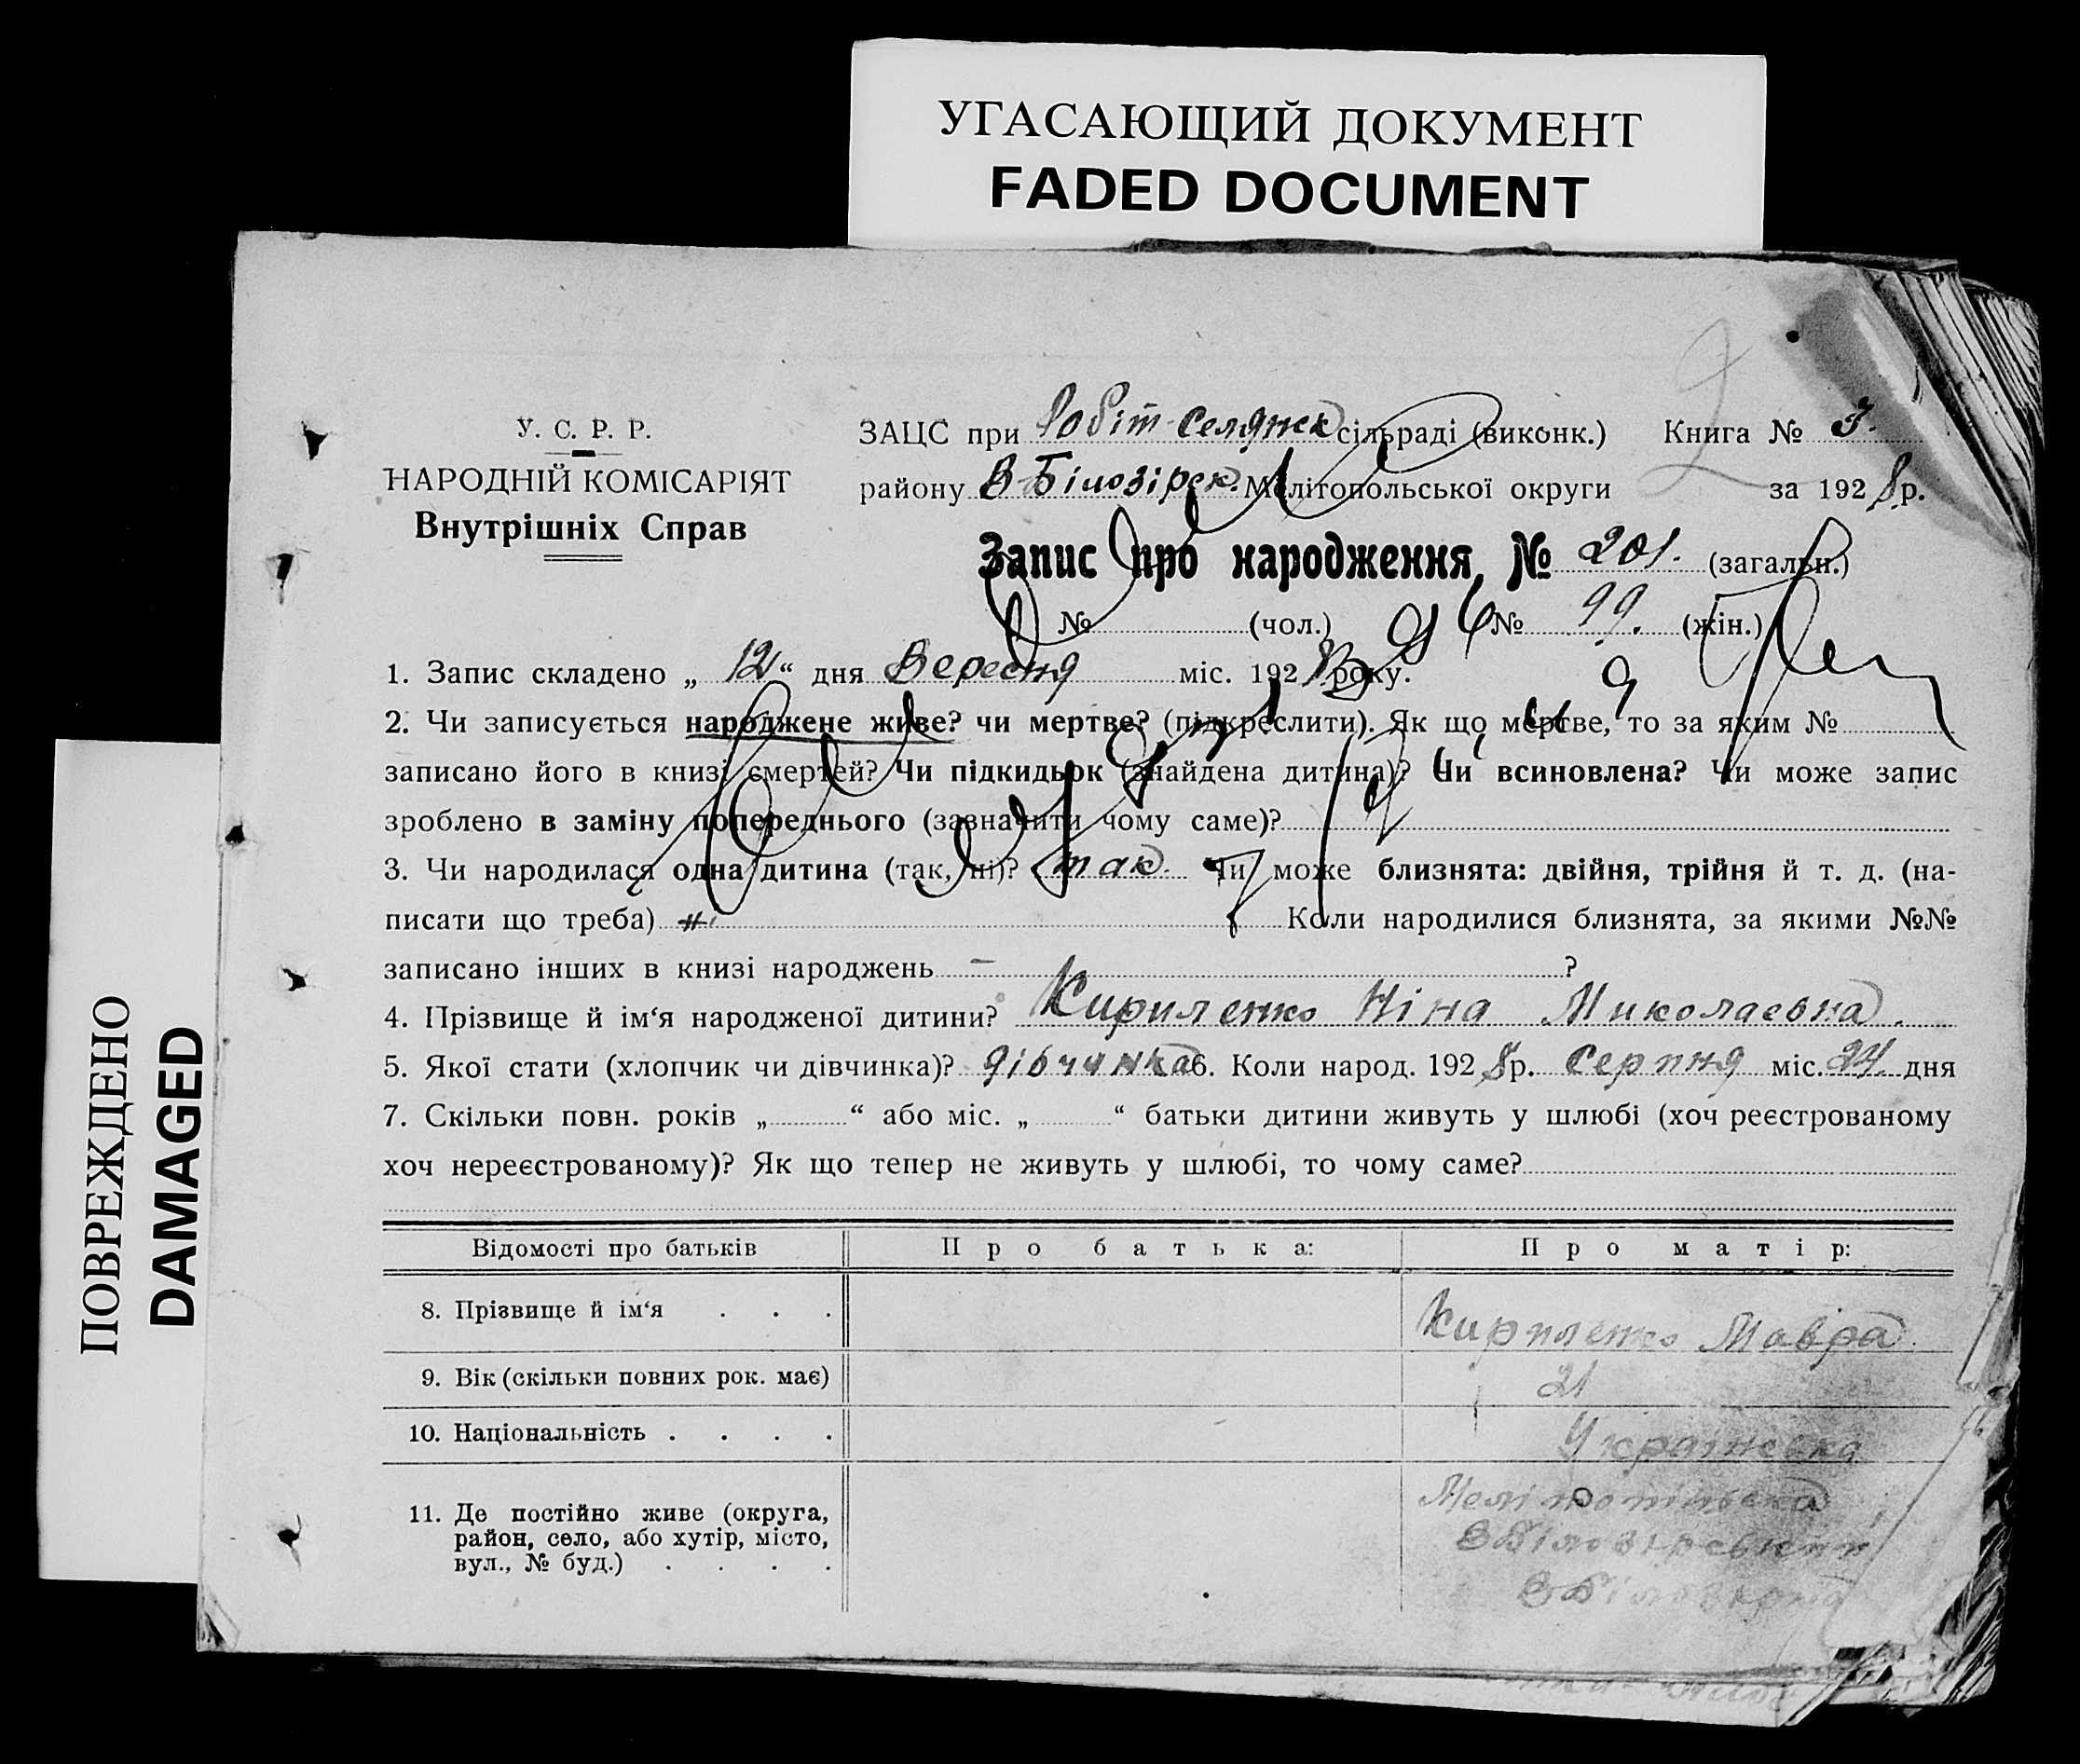 УГАСАЮЩИЙ ДОКУМЕНТ
FADED DOCUMENT
ПОВРЕЖДЕНО
DAMAGED
У. С. Р. Р.
НАРОДНІЙ КОМІСАРІЯТ
Внутрішніх Справ
ЗАЦС при Робіт-Селянск сільраді (виконк.) Книга № 3.
району В-Білозірск. Мелітопольської округи за 1928 р.
Запис про народження, № 201. (загальн.)
№ (чол.) № 99. (жін.)
1. Запис складено „ 12 “ дня Вересня міс. 1928 року.
2. Чи записується народжене живе? чи мертве? (підкреслити). Як що мертве, то за яким №
записано його в книзі смертей? Чи підкидьок (знайдена дитина)? Чи всиновлена? Чи може запис
зроблено в заміну попереднього (зазначити чому саме)?
3. Чи народилася одна дитина (так, ні)? так. Чи може близнята: двійня, трійня й т. д. (на-
писати що треба) Коли народилися близнята, за якими №№
записано інших в книзі народжень – ?
4. Прізвище й ім‘я народженої дитини? Кириленко Ніна Миколаевна.
5. Якої стати (хлопчик чи дівчинка)? дівчинка 6. Коли народ. 1928 р. Серпня міс. 24. дня
7. Скільки повн. років „ “ або міс. „ “ батьки дитини живуть у шлюбі (хоч реєстрованому
хоч нереєстрованому)? Як що тепер не живуть у шлюбі, то чому саме?
Відомості про батьків Про батька: Про матір:
8. Прізвище й ім‘я . . . Кириленко Мавра.
9. Вік (скільки повних рок. має) 21
10. Національність . . . . Українська
11. Де постійно живе (округа, Мелітопільска
район, село, або хутір, місто, В Білозірський
вул., № буд.) . . . . В Білозірка